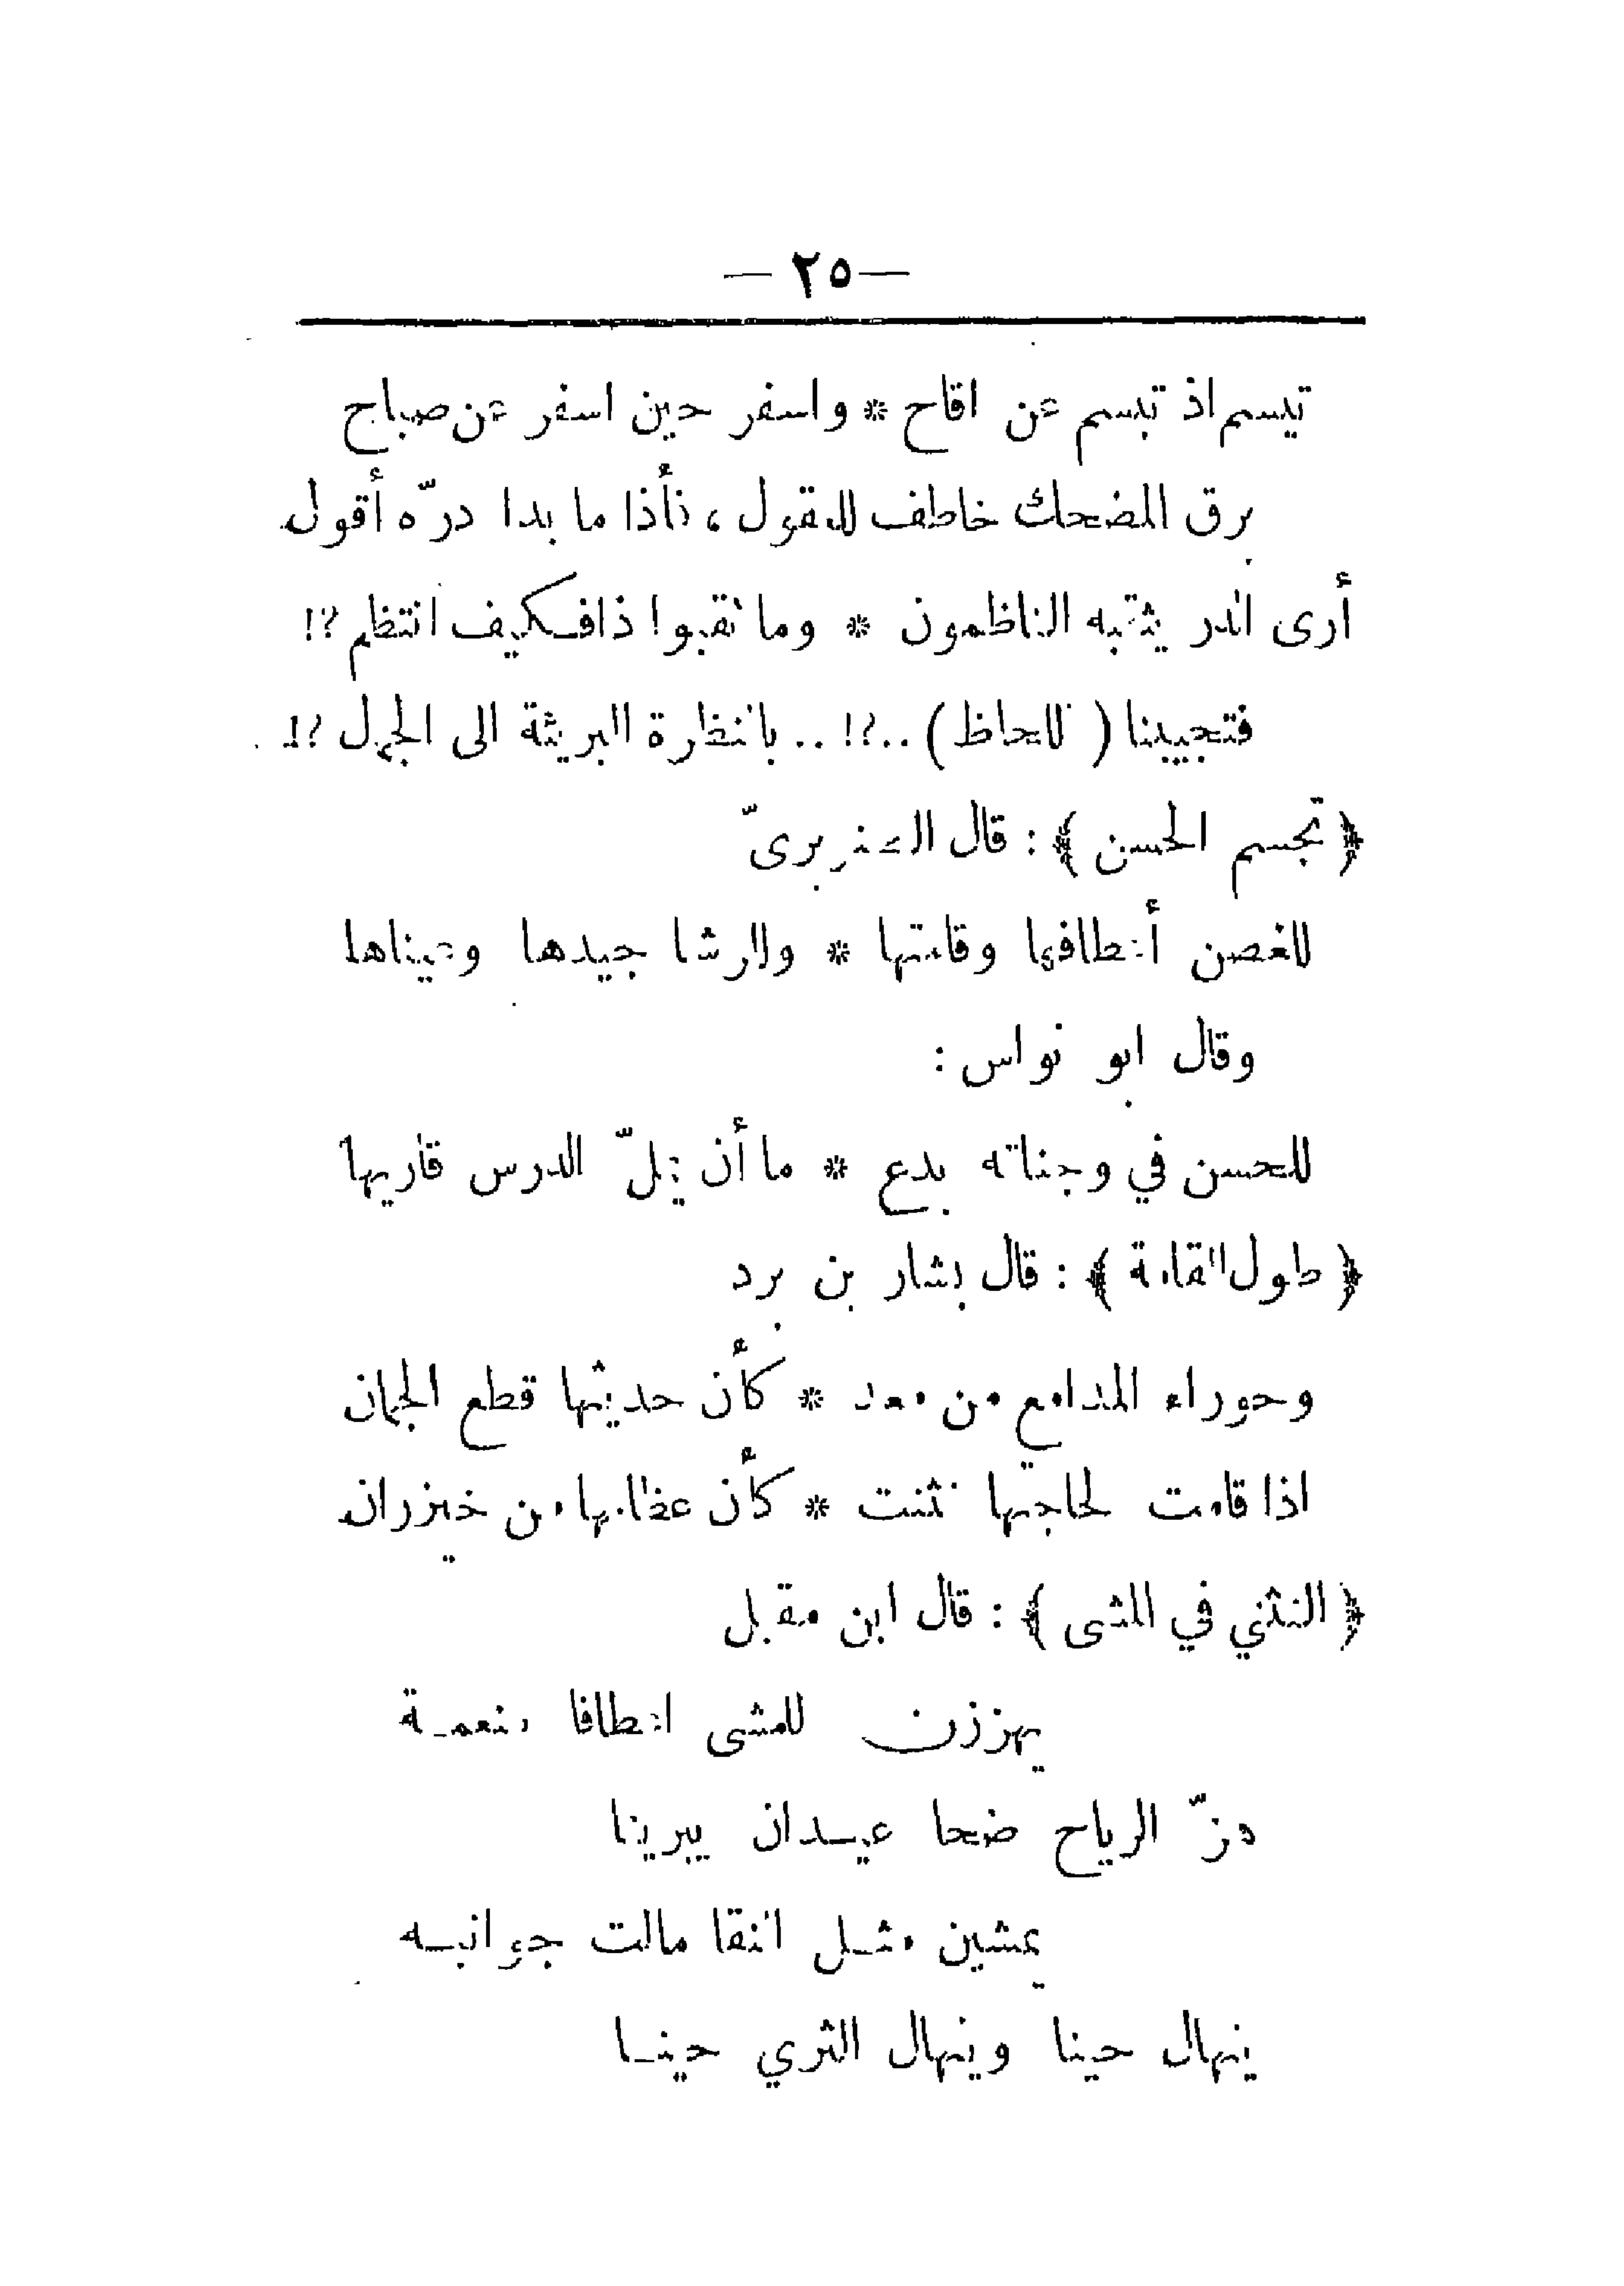 — ٢٥ —
تبسم اذ تبسم عن اقاح * واسفر حين اسفر عن صباح
برق المضحك خاطف للعقول ، فأذا ما بدا درّه أقول
أرى الدر يثقبه الناظمون * وما ثقبوا ذا فكيف انتظم ؟!
فتجيبنا ( اللحاظ ) ..؟! .. بالنظرة البريئة الى الجمال ؟!
﴿ تجسم الحسن ﴾ : قال
للغصن أعطافها وقامتها * وللرشا جيدها وعيناها
وقال ابو نواس :
للحسن في وجناته بدع * ما أن يملّ الدرس قاريها
﴿ طول القامة ﴾ : قال بشار بن برد
وحوراء المدامع من معد * كأن حديثها قطع الجمان
اذا قامت لحاجتها تثنت * كأن عظامها من خيزران
﴿ التثني في المشى ﴾ : قال ابن مقبل
يهززن للمشى اعطافا منعمة
هزّ الرياح ضحا عيدان يبرينا
يمشين مثل النقا مالت جوانبه
ينهال حينا وينهال الثري حينا